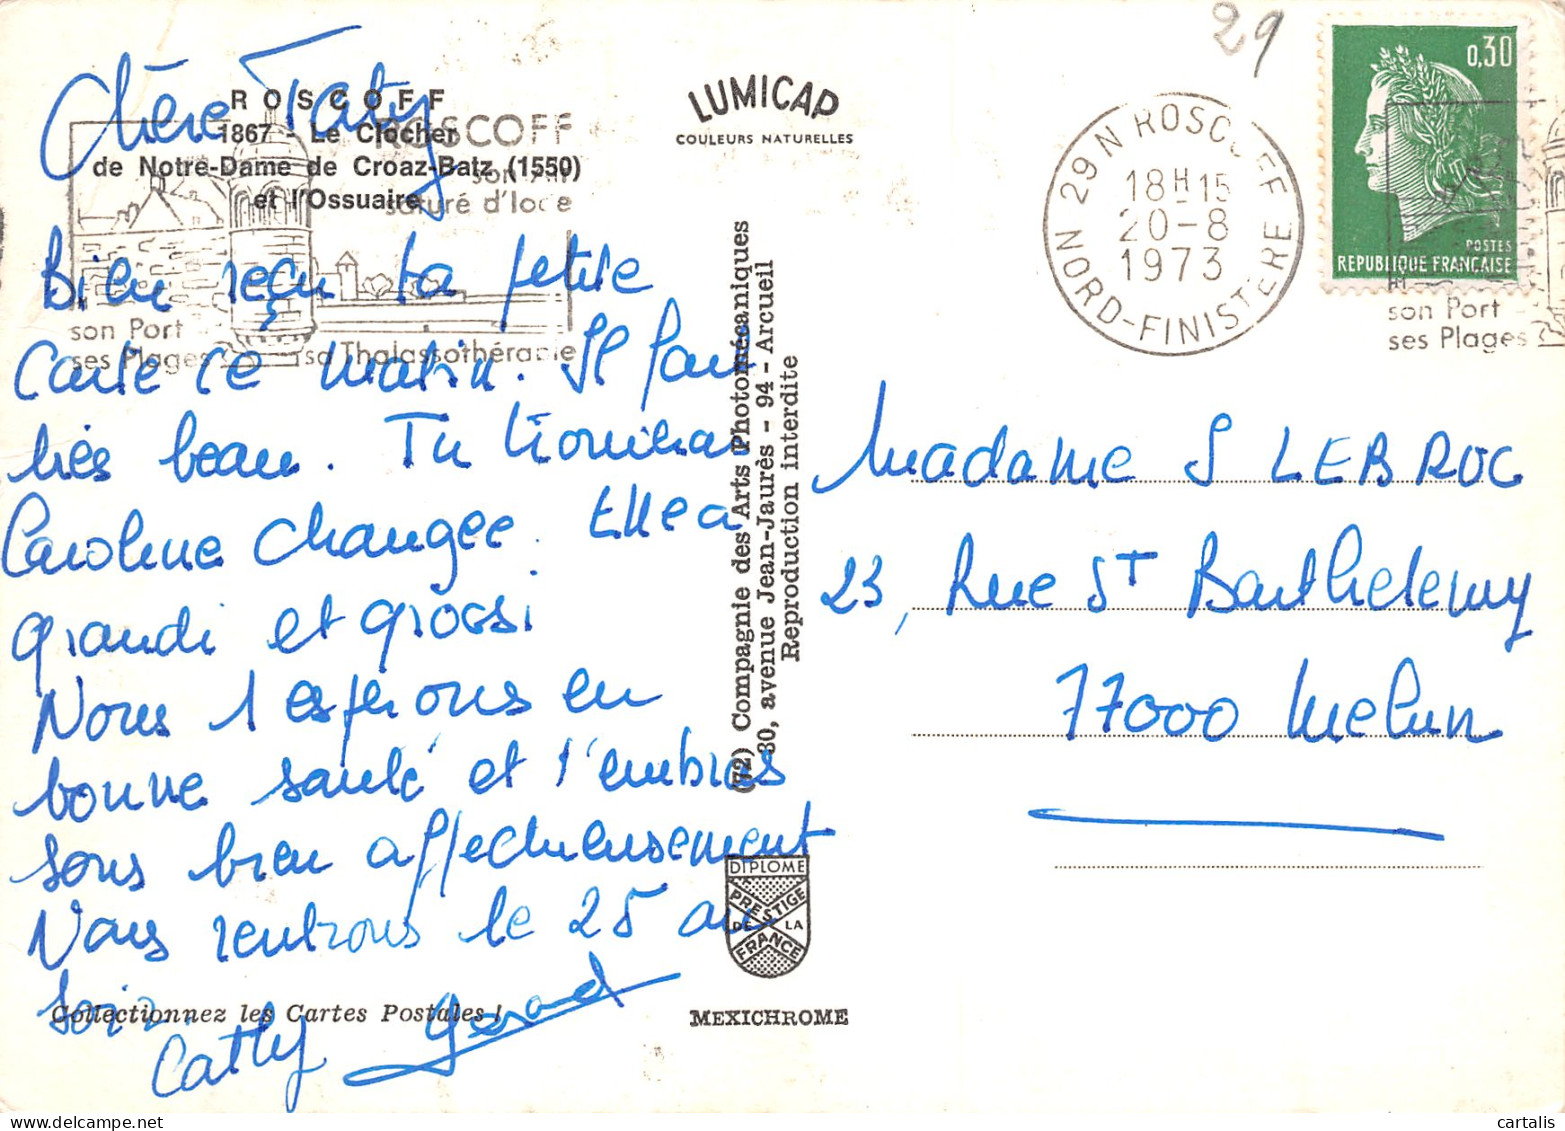 29
Chère Taty
ROSCOFF
1867 - Le Clocher
de Notre-Dame de Croaz-Batz (1550)
et l'Ossuaire
ROSCOFF
son Air
saturé d'Iode
son Port
ses Plages
sa Thalassothérapie
Bien reçu ta petite
Carte ce matin. Il fait
très beau. Tu trouveras
Caroline changée. Elle a
grandi et grossi
Nous t espérons en
bonne santé et t'embras
sons bien affectueusement
Nous rentrons le 25 au
soir.
Cathy Gérard
Collectionnez les Cartes Postales !
LUMICAP
COULEURS NATURELLES
(72) Compagnie des Arts Photomécaniques
80, avenue Jean-Jaurès - 94 - Arcueil
Reproduction interdite
DIPLOME
PRESTIGE
DE LA
FRANCE
MEXICHROME
29 N ROSCOFF
18H15
20-8
1973
NORD-FINISTERE
0,30
POSTES
REPUBLIQUE FRANCAISE
son Port
ses Plages
Madame S LEBROC
23, Rue St Barthelemy
77000 Melun
cartalis.com